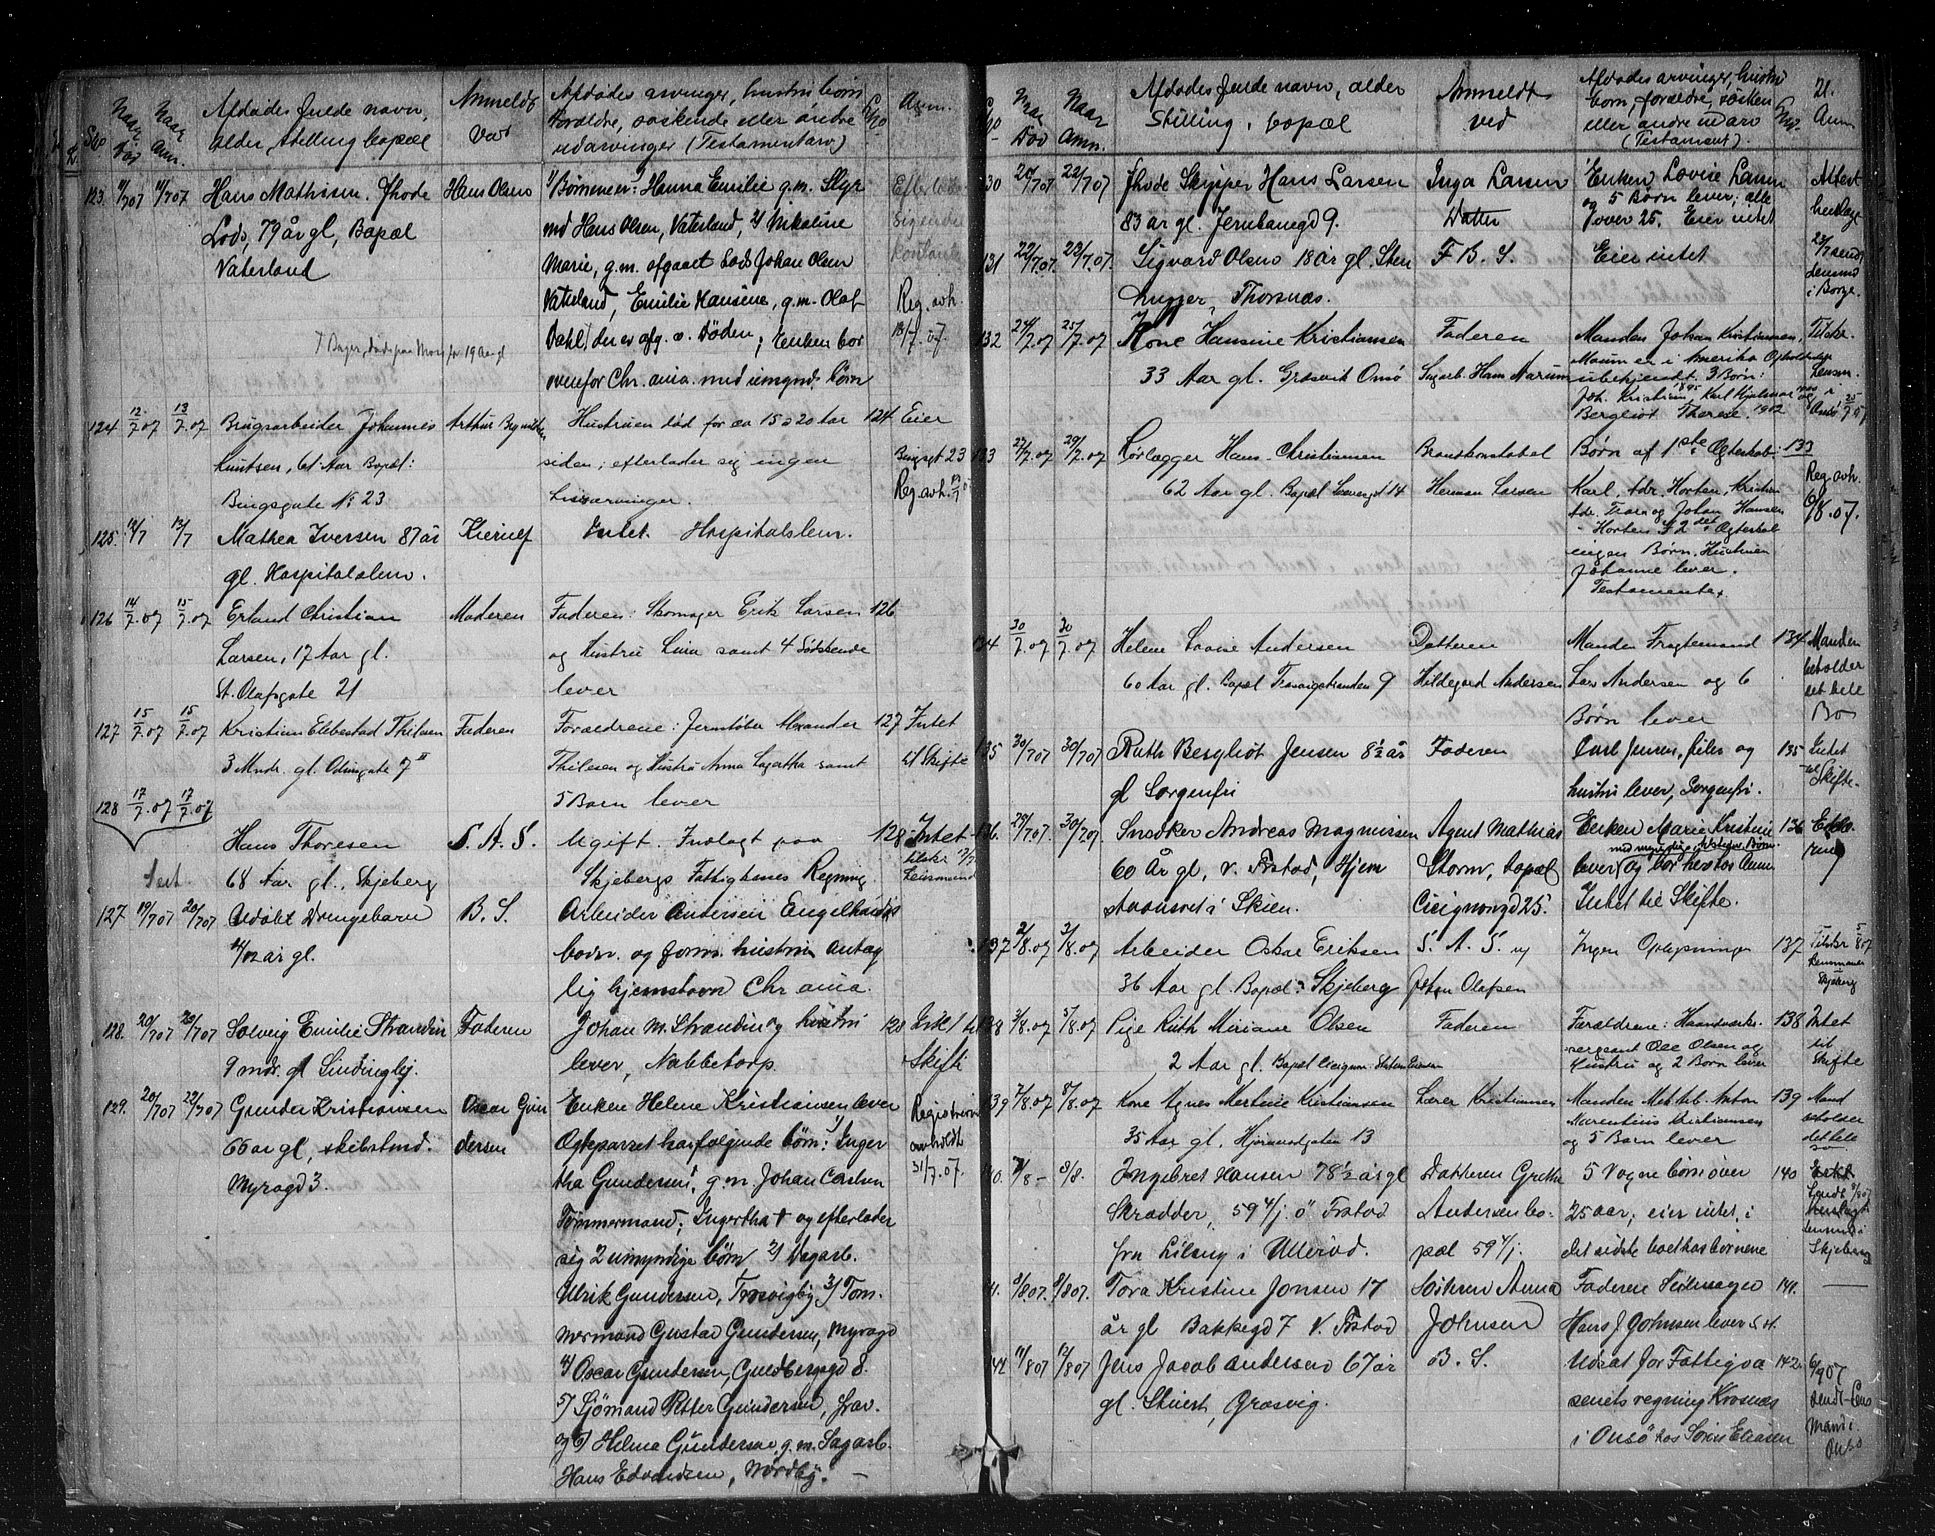 Løb
Naar død
Naar Anm.
Afdødes fulde navn,
alder, stilling bopæl
Anmeldt
ved
Afdødes arvinger, hustru børn
forældre, søskende eller andre
udarvinger (Testamentarv)
Anm.
123. 11/707 11/707 Hans Mathisen. fhv
Lods, 79 år gl, Bopæl
Vaterland
Hans Olsen
1) Børnene er: Hanna Emilie g.m. Styr
md Hans Olsen, Vaterland, 2) Nikoline
Marie, g.m. afgaaet Lods Johan Olsen
Vaterland, Emilie Hansine, g.m. Olaf
Dahl, der er afg. v. Døden; Enken bor
ovenfor Chr.ania med umynd. børn
Reg. avh.
18/7.07.
124 12/7.07 13/7.07 Brugsarbeider Johannes
Knutsen, 61 Aar Bopæl:
Bingsgate № 23
Arthur
Hustruen død for ca 15 a 20 Aar
siden; efterlader sig ingen
Livsarvinger.
124 Eier
Bingsgt 23
Reg. avh.
125. 12/7 13/7 Mathea Iversen 87 år
gl. Hospitalslem.
Kierulf
Intet. Hospitalslem.
126 14/7.07 15/7.07 Erland Christian
Larsen, 17 Aar gl.
St. Olafsgate 21
Moderen
Faderen: Skomager Erik Larsen
og Hustru Lina samt 4 Sødskende
lever
126
127 15/7.07 15/7.07 Kristian Ellebestad Thilesen
3 Mndr. gl. Odinsgate 7 II
Faderen
Forældrene: Jernstøber Alexander
Thilesen og Hustru Anna Lagatha samt
5 Børn lever
127 Intet
til Skifte
128 17/7.07 17/7.07
Hans Thoresen
68 Aar gl., Skjeberg
S. A. S.
Ugift. Indlagt paa
Skjebergs Fattigvæsens Regning
128 Intet
Lensmand
127. 19/707 20/707 Adolf Drengebarn
4/12 år gl.
B. S.
Arbeider Andersen Engelhaugs
bodn. og form. hustru antag
lig hjemstavn Chr.ania.
128. 20/707 20/707 Solveig Emilie Strandin
9 mdr. gl Lindinglej.
Faderen
Johan M. Strandin og hustru
lever, Nabbetorp.
128 Intet til
Skifte
129. 20/707 22/707 Gunder Kristiansen
66 ar gl, skibstmd.
Myragd 3.
Oscar Gun
dersen
Enken Helene Kristiansen lever
Ægteparret har følgende børn: 1 Inger
tha Gundersen, g.m. Johan Carlsen
Tømmermand; Ingertha † og efterlader
sig 2 umyndige børn 2) Dagarb.
Ulrik Gundersen, Trosvigby 3) Tøm.
mermand Gustav Gundersen, Myragd
4) Oscar Gundersen, Guldbergsgd 8.
5/ Sjømand Petter Gundersen, frav.
og 6) Helma Gundersen, g.m. Sagarb.
Hans Edvardsen, Nordby. —
Registrering
anholdt
31/7.07.
Naar Død
Naar Anm.
Afdødes fulde navn, alder
Stilling, bopæl
Anmeldt
ved
Afdødes arvinger, hustru
børn, forældre, søsken
eller andre udarv
(Testament)
Anm
130 20/707 22/707 fhv Skipper Hans Larsen
83 ar gl. Jernbanegd 9.
Inga Larsen
Datter
Enken Lovise Larsen
og 5 Børn lever; alle
over 25. Eier intet
131 22/7.07. 23/7.07. Sigvard Olsen 18 år gl. Sten
hugger, Thorsnæs.
F. B. S.
Eier intet
23/7 sendt
Lensmd
i Borge.
132 24/7.07 25/7.07 Kone Hansine Kristiansen
33 Aar gl. Græsvik Onsø
Faderen
Sagarb. Hans Aarum
Manden Johan Kristiansen,
Maum er i Amerika Opholdsstep
ubekjendt. 3 Børn:
Joh. Kristian 1895, Karl Hjalmar og
Bergliot Therese. 1902
Tilskr.
Lensm.
i
Onsø 25/7 07
133 27/7.07 29/7.07 Rørlegger Hans Christiansen
62 Aar gl. Bopæl 14
Brandkonstabel
Herman Larsen
Børn af 1ste Ægteskab:
Karl, Adr. Horten, Kristian
Adr. Trara og Johan Hansen
" Horten. I 2det Ægteskab
ingen Børn. Hustruen
Johanne lever.
Testamente,
133
Reg. avh.
134 30/7.07 30/7.07 Helene Lovise Andersen
60 Aar gl. Bopæl Trosvigstranden 9
Datteren
Hildegard Andersen
Manden Fragtemand
Lars Andersen og 6
Børn lever
134 Manden
beholder
det hele
Bo
135 30/707 30/707 Ruth Bergliot Jensen 8½ år
gl Sorgenfri
Faderen
Carl Jensen, filer og
hustru lever, Sorgenfri.
135 Intet
til Skifte.
136. 29/707 30/707. Snedker Andreas Magnussen
60 År gl, v. Frstad, Hjem
stavnsret i Skien.
Agent Mathias
Storm, bopæl
Cicignongd 25.
Enken Marie Kristine
lever og bor hos
Intet til Skifte.
136
137 2/8.07 3/8.07 Arbeider Oskar Eriksen
36 Aar gl. Bopæl: Skjeberg
S. A. S. og
Johan Olafsen
Ingen Oplysninger
137 Tilskr 5/8 07
Lensmanden
Skjeberg
138 3/8.07 5/8.07 Pige Ruth Miriane Olsen
2 Aar gl. Bopæl Cicignon
Faderen
Forældrene: Haandverks-
sergeant Ole Olsen og
Hustru og 2 Børn lever
138 Intet
til
Skifte
139 7/8.07 8/8.07 Kone Agnes Martine Kristiansen
35 Aar gl, Hjørnerdgaten 13
Lærer Kristiansen
Manden Mathb. Anton
Marentius Kristiansen
og 5 Børn lever
139 Mand
beholder
det hele
bo.
140. 7/8 - 8/8. Ingebret Hansen 78½ år gl
Skrædder, 59 4/j. ø Frstad
fra i Ullerød.
Datteren Grethe
Andersen bo-
pæl 59 4/j.
5 Vogne børn over
25 aar; eier intet, i
det sidste boet hos børnene
140
Sendt 9/807
Lensmd i
Skjeberg
141. 8/807. 9/807. Tora Kristine Jonsen 17
år gl Bakkegd 7 V. Frstad
Søstren Anna
Johnsen
Faderen Seilmager
Hans J. Johnsen lever S.H.
141.
142 11/807 12/807 Jens Jacob Andersen 67 år
gl. Stuert, Græsvig.
B. S.
Udsat for Fattigvæ
senets regning Krosnæs
i Onsø hos Søren Eliasen
142. 6/907
sendt Lens
mand i
Onsø